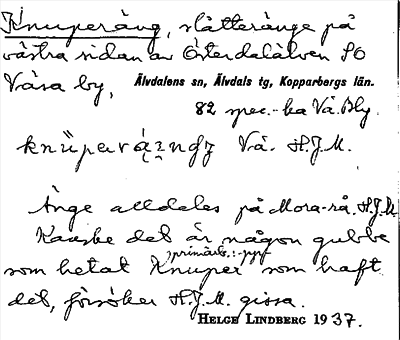 Knuperäng, slåtteränge på
västra sidan av Österdalälven SO
Våsa by, Älvdalens sn, Älvdals tg, Kopparbergs län.
82 spec.-ka Vå. Bly.
Vå. H.J.M.
Änge alldeles på Mora-rå. H.J.M.
Kanske det är någon gubbe
som hetat Knuper som haft
det, försöker H.J.M. gissa.
HELGE LINDBERG 1937.